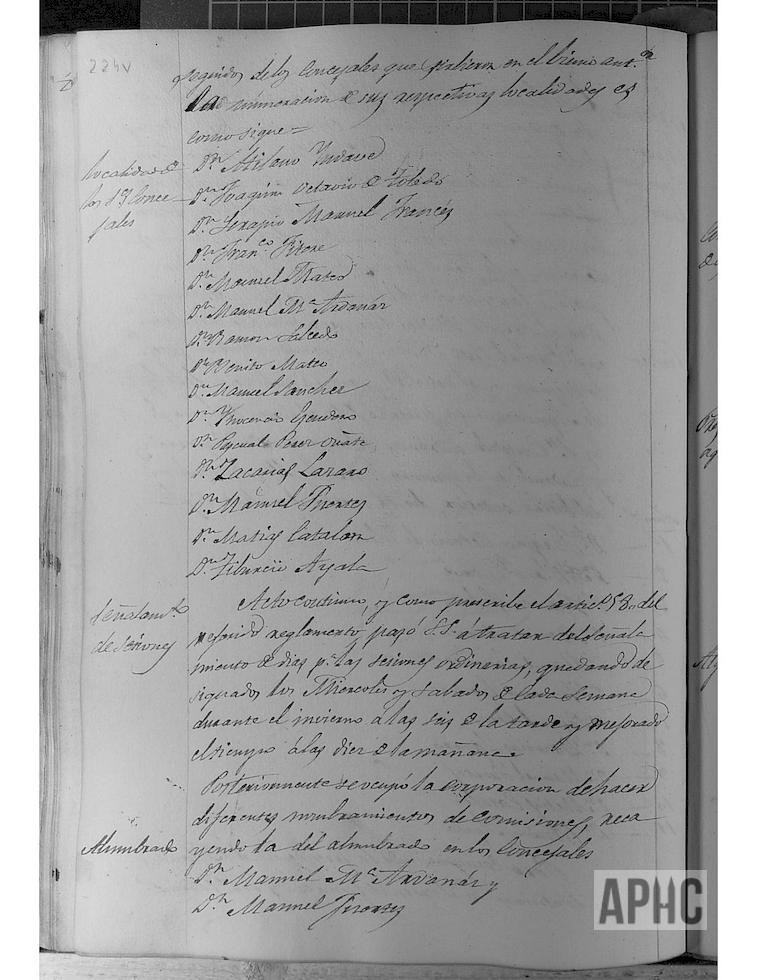 224v
seguidos de los Concejales que sirvieron en el bienio ant.or
La numeracion de sus respectivas localidades es
como sigue=
localidad de
los S.S Conce-
jales
D.n Milano Yudaved
D.n Joaquin Octavio de Toledo
D.n Serapio Manuel Francés
D.n Fran.co Fitore
D.n Manuel Mateo
D.n Manuel M.a Ardanáz
D.n Ramon Salcedo
D.n Benito Mateo
D.n Manuel Sanchez
D.n Ynocencio Gendero
D.n Pascual Perez Oñate
D.n Zacarias Lazaro
D.n Manuel Fuertes
D.n Matias Catalan
D.n Tiburcio Ayala
Señalam.to
de Sesiones
Acto continuo, y como prescribe el artic.o 58, del
referido reglamento pasó S.S. á tratar del señala
miento de dias p.a las sesiones ordinarias, quedando de
signados los Miercoles y Sabados de cada semana
durante el invierno á las seis de la tarde y mejorado
el tiempo á las diez de la mañana.
Posteriormente se ocupó la corporacion de hacer
diferentes nombramientos de Comisiones, reca
Alumbrado
yendo la del alumbrado en los Concejales
D.n Manuel M.a Ardanáz y
D.n Manuel Fuertes
APHC